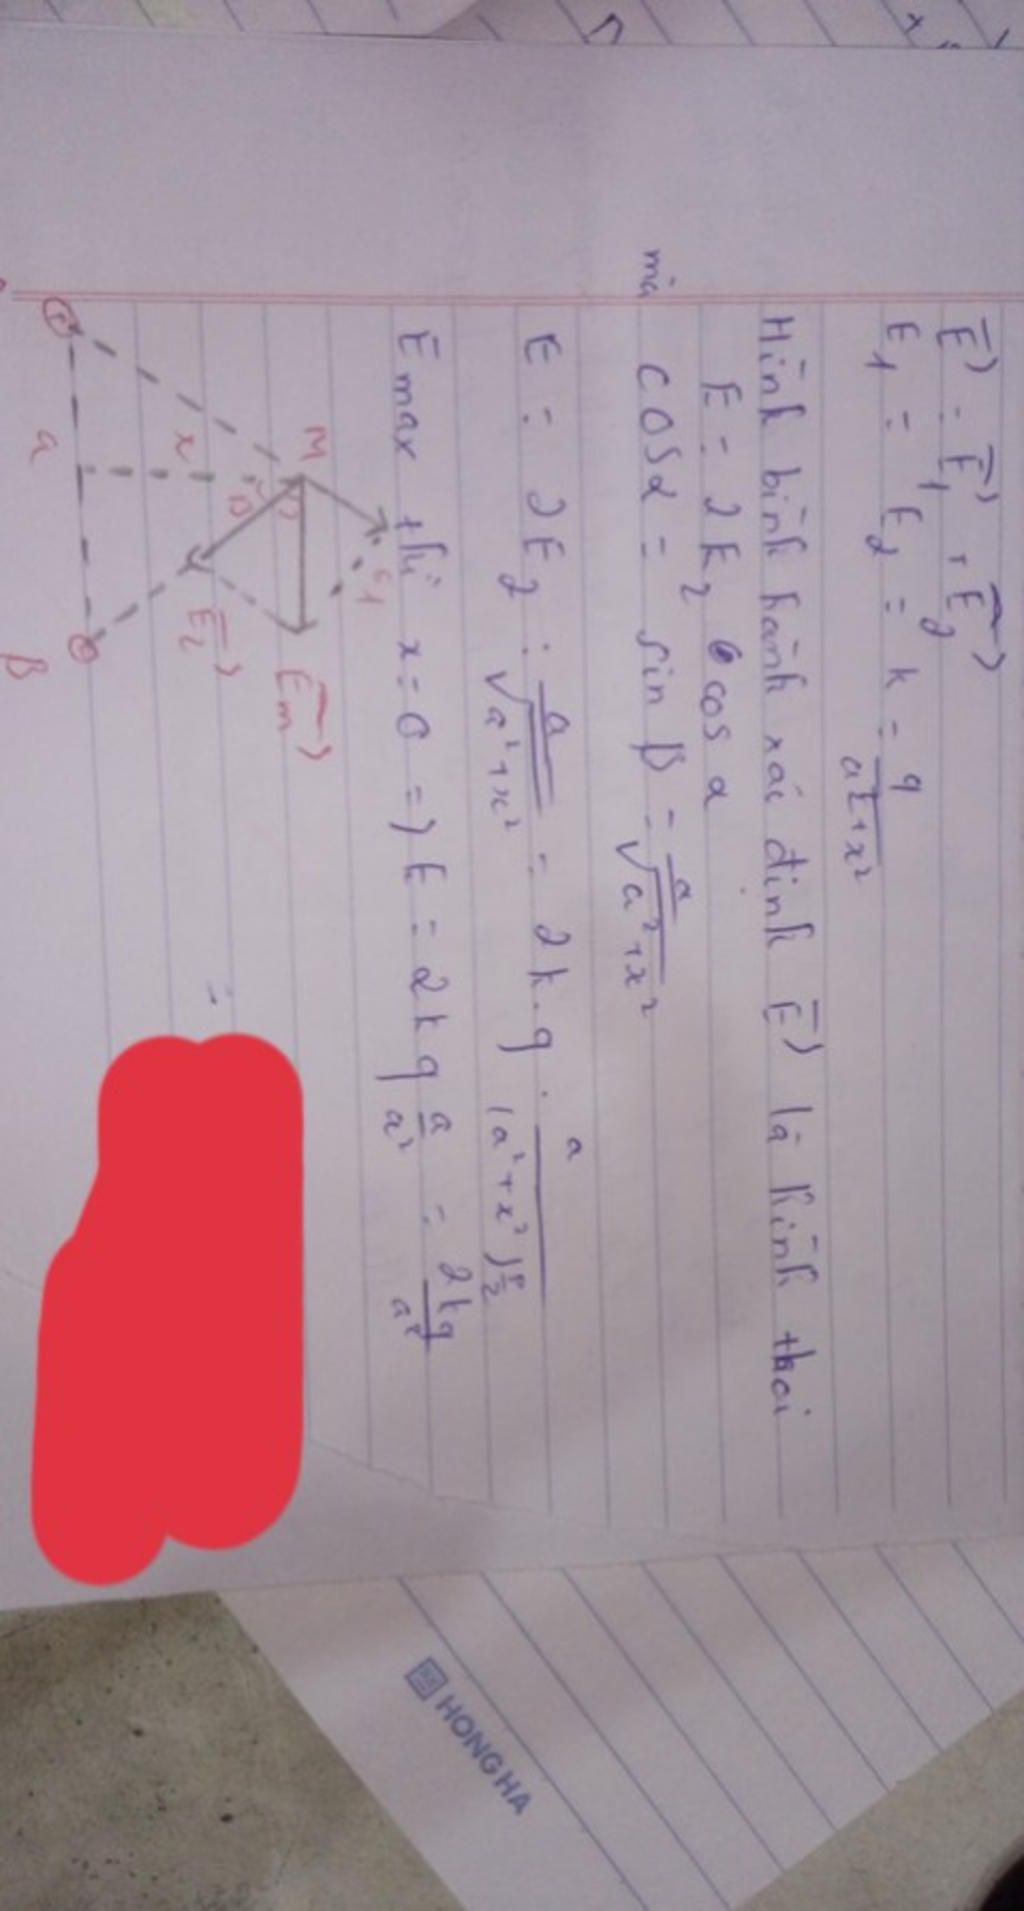 E⃗ = E⃗₁ + E⃗₂
E₁ = E₂ = k = q / a² + x²
Hình bình hành xác định E⃗ là hình thoi
E = 2E₂ cos α
mà cos α = sin β = a / √a² + x²
E = 2E₂ . a / √a² + x² = 2k.q . a / (a² + x²)
E max thì x = 0 => E = 2kq a / a² = 2kq / a²
M
E₁
β
x
E⃗₂
E⃗m
a
B
HONG HA